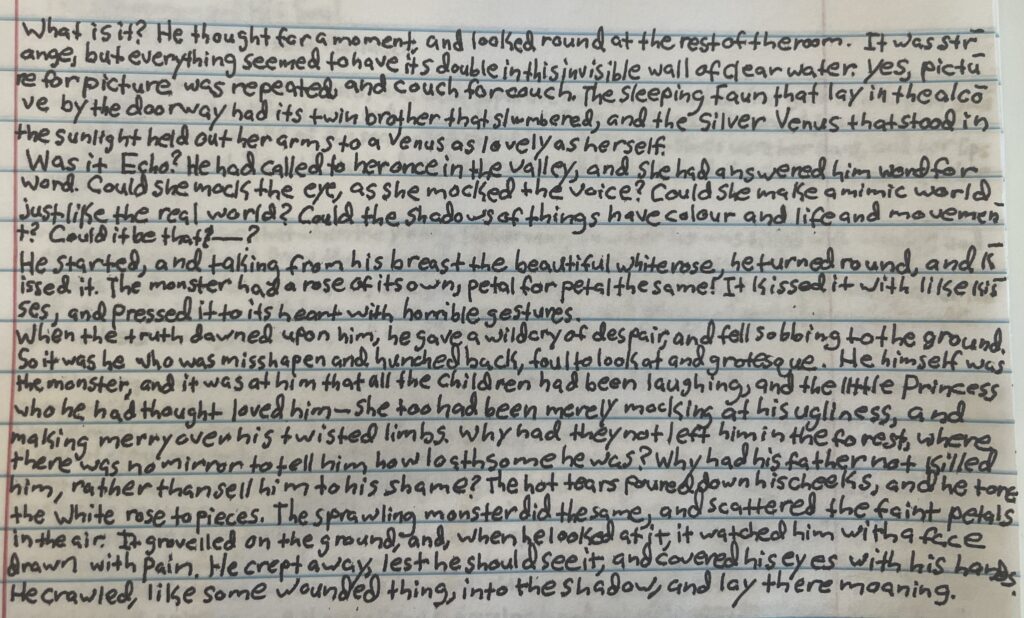 What is it? He thought for a moment, and looked round at the rest of the room. It was str
ange, but everything seemed to have its double in this invisible wall of clear water. Yes, pictu
re for picture was repeated, and couch for couch. The sleeping faun that lay in the alco
ve by the doorway had its twin brother that slumbered, and the silver Venus that stood in
the sunlight held out her arms to a Venus as lovely as herself.
Was it Echo? He had called to her once in the valley, and she had answered him word for
word. Could she mock the eye, as she mocked the voice? Could she make a mimic world
just like the real world? Could the shadows of things have colour and life and movemen
t? Could it be that?—?
He started, and taking from his breast the beautiful white rose, he turned round, and k
issed it. The monster had a rose of its own, petal for petal the same! It kissed it with like kis
ses, and pressed it to its heart with horrible gestures.
When the truth dawned upon him, he gave a wild cry of despair, and fell sobbing to the ground.
So it was he who was misshapen and hunched back, foul to look at and grotesque. He himself was
the monster, and it was at him that all the children had been laughing, and the little Princess
who he had thought loved him—she too had been merely mocking at his ugliness, and
making merry over his twisted limbs. Why had they not left him in the forest, where
there was no mirror to tell him how loathsome he was? Why had his father not killed
him, rather than sell him to his shame? The hot tears poured down his cheeks, and he tore
the white rose to pieces. The sprawling monster did the same, and scattered the faint petals
in the air. It grovelled on the ground, and, when he looked at it, it watched him with a face
drawn with pain. He crept away, lest he should see it, and covered his eyes with his hands.
He crawled, like some wounded thing, into the shadow, and lay there moaning.